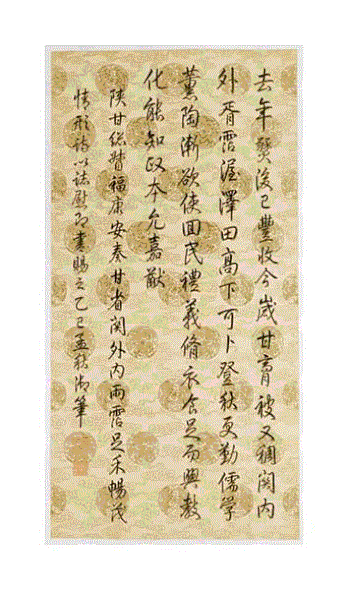 去年燹後已豐收今歲甘膏被又稠関内
外胥霑渥澤田高下可卜登秋更勤儒學
薰陶漸欲使囬民禮義脩衣食足而興教
化能知政本允嘉猷
陝甘總督福康安奏甘省関外内雨霑足禾暢茂
情形詩以誌慰即書賜之乙巳孟秋御筆